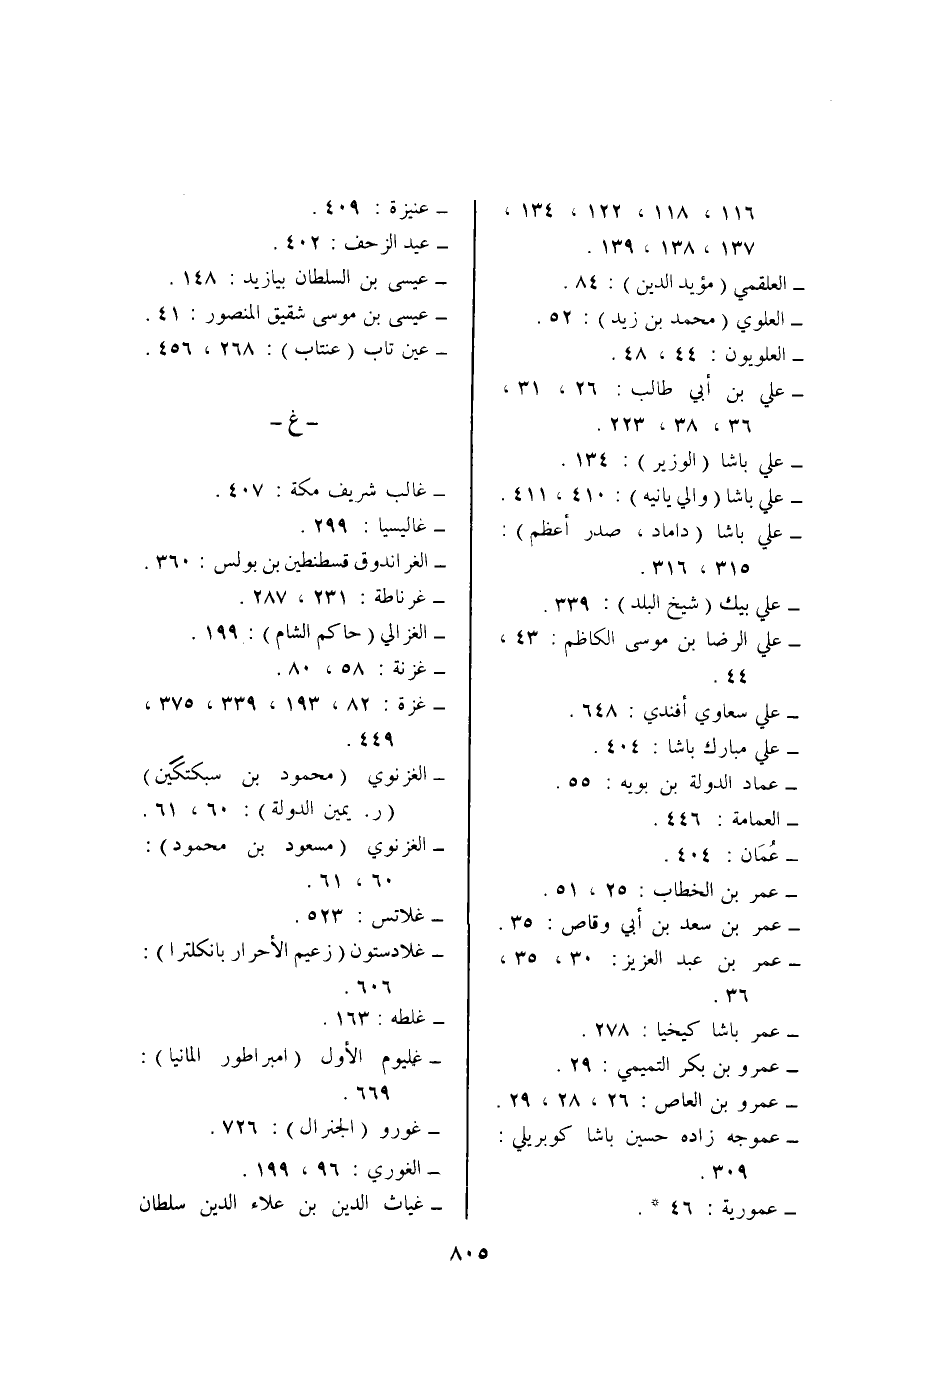 ١١٦ ، ١١٨ ، ١٢٢ ، ١٣٤ ،
١٣٧ ، ١٣٨ ، ١٣٩ .
ـ العلقمي ( مؤيد الدين ) : ٨٤ .
ـ العلوي ( محمد بن زيد ) : ٥٢ .
ـ العلويون : ٤٤ ، ٤٨ .
ـ علي بن أبي طالب : ٢٦ ، ٣١ ،
٣٦ ، ٣٨ ، ٢٢٣ .
ـ علي باشا ( الوزير ) : ١٣٤ .
ـ علي باشا ( والي يانيه ) : ٤١٠ ، ٤١١ .
ـ علي باشا ( داماد ، صدر أعظم ) :
٣١٥ ، ٣١٦ .
ـ علي بيك ( شيخ البلد ) : ٣٣٩ .
ـ علي الرضا بن موسى الكاظم : ٤٣ ،
٤٤ .
ـ علي سعاوي أفندي : ٦٤٨ .
ـ علي مبارك باشا : ٤٠٤ .
ـ عماد الدولة بن بويه : ٥٥ .
ـ العمامة : ٤٤٦ .
ـ عُمَان : ٤٠٤ .
ـ عمر بن الخطاب : ٢٥ ، ٥١ .
ـ عمر بن سعد بن أبي وقاص : ٣٥ .
ـ عمر بن عبد العزيز : ٣٠ ، ٣٥ ،
٣٦ .
ـ عمر باشا كيخيا : ٢٧٨ .
ـ عمرو بن بكر التميمي : ٢٩ .
ـ عمرو بن العاص : ٢٦ ، ٢٨ ، ٢٩ .
ـ عموجه زاده حسين باشا كوبريلي :
٣٠٩ .
ـ عمورية : ٤٦ * .
ـ عنيزة : ٤٠٩ .
ـ عيد الزحف : ٤٠٢ .
ـ عيسى بن السلطان بيازيد : ١٤٨ .
ـ عيسى بن موسى شقيق المنصور : ٤١ .
ـ عين تاب ( عنتاب ) : ٢٦٨ ، ٤٥٦ .
- غ -
ـ غالب شريف مكة : ٤٠٧ .
ـ غاليسيا : ٢٩٩ .
ـ الغراندوق قسطنطين بن بولس : ٣٦٠ .
ـ غرناطة : ٢٣١ ، ٢٨٧ .
ـ الغزالي ( حاكم الشام ) : ١٩٩ .
ـ غزنة : ٥٨ ، ٨٠ .
ـ غزة : ٨٢ ، ١٩٣ ، ٣٣٩ ، ٣٧٥ ،
٤٤٩ .
ـ الغزنوي ( محمود بن سبكتگين )
( ر. يمين الدولة ) : ٦٠ ، ٦١ .
ـ الغزنوي ( مسعود بن محمود ) :
٦٠ ، ٦١ .
ـ غلاتس : ٥٢٣ .
ـ غلادستون ( زعيم الأحرار بانكلترا ) :
٦٠٦ .
ـ غلطه : ١٦٣ .
ـ غليوم الأول ( امبراطور المانيا ) :
٦٦٩ .
ـ غورو ( الجنرال ) : ٧٢٦ .
ـ الغوري : ٩٦ ، ١٩٩ .
ـ غياث الدين بن علاء الدين سلطان
٨٠٥